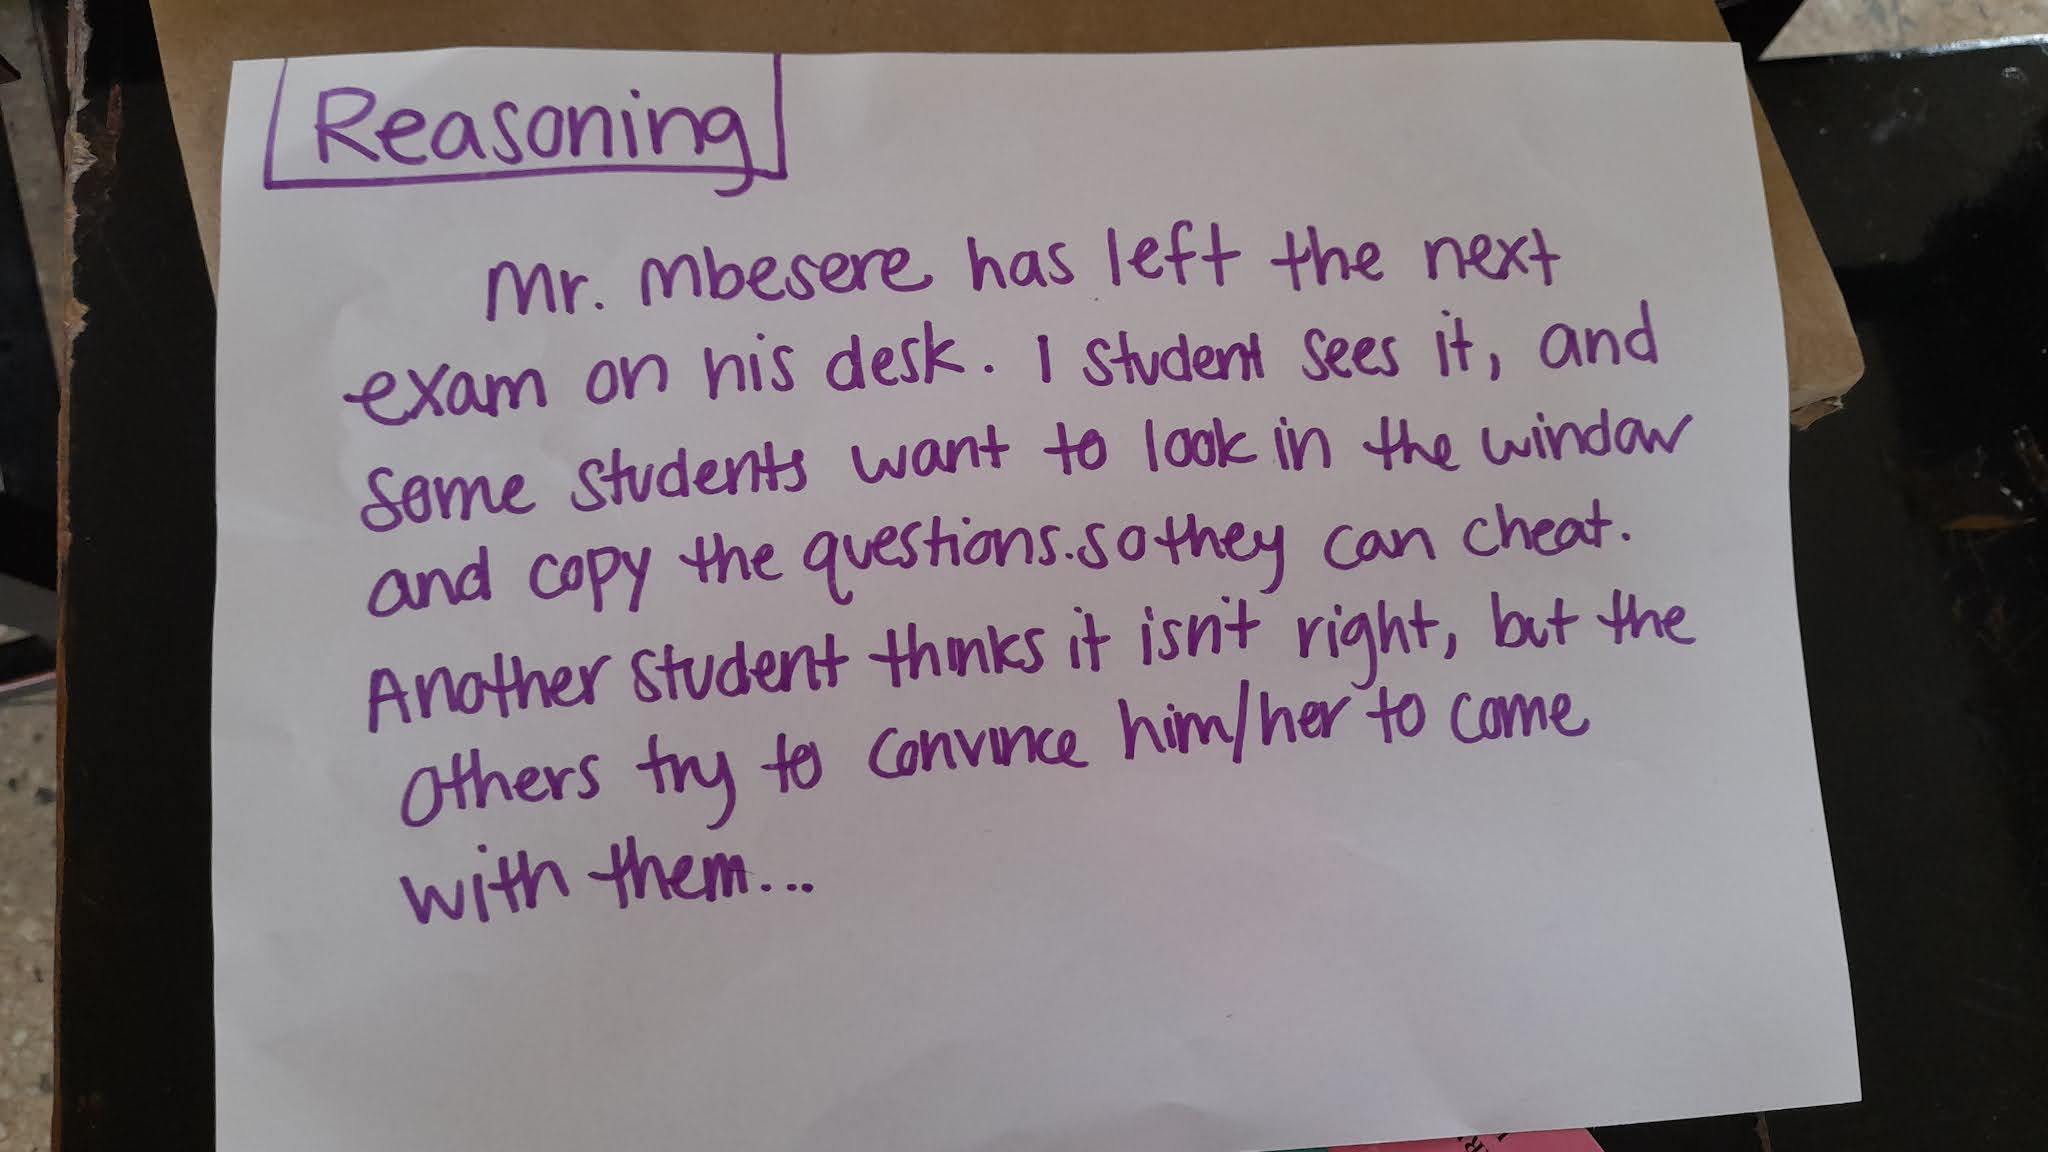 Reasoning
Mr. Mbesere has left the next
exam on his desk. 1 student sees it, and
some students want to look in the window
and copy the questions.so they can cheat.
Another student thinks it isn't right, but the
others try to convince him/her to come
with them...